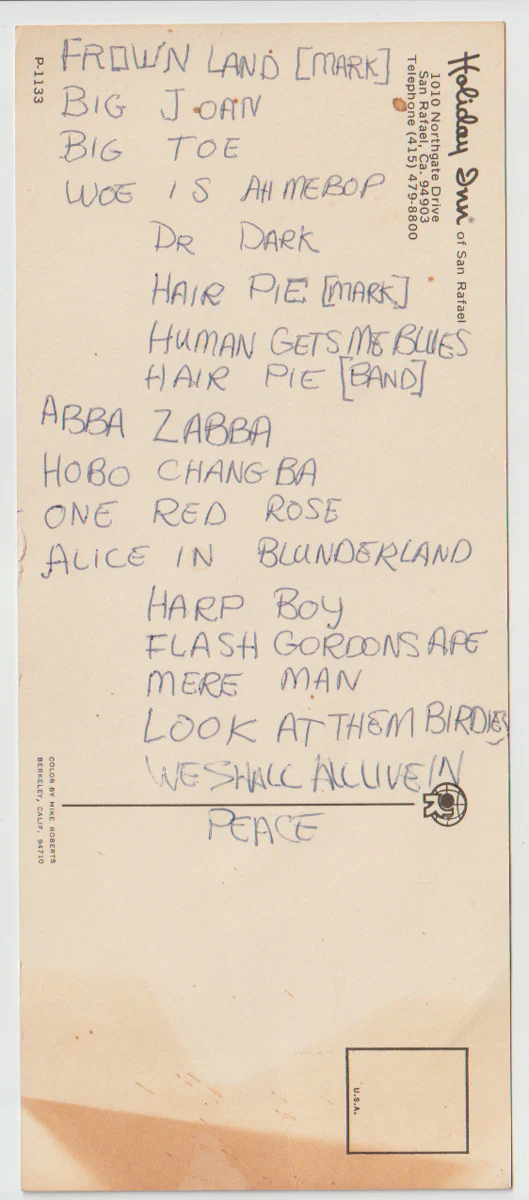 FROWN LAND [MARK]
BIG JOAN
BIG TOE
WOE IS AHMEBOP
DR DARK
HAIR PIE [MARK]
HUMAN GETS ME BLUES
HAIR PIE [BAND]
ABBA ZABBA
HOBO CHANG BA
ONE RED ROSE
ALICE IN BLUNDERLAND
HARP BOY
FLASH GORDONS APE
MERE MAN
LOOK AT THEM BIRDIES
WE SHALL ALL LIVE IN
PEACE
Holiday Inn® of San Rafael
1010 Northgate Drive
San Rafael, Ca. 94903
Telephone (415) 479-8800
P-1133
COLOR BY MIKE ROBERTS
BERKELEY, CALIF. 94710
U.S.A.